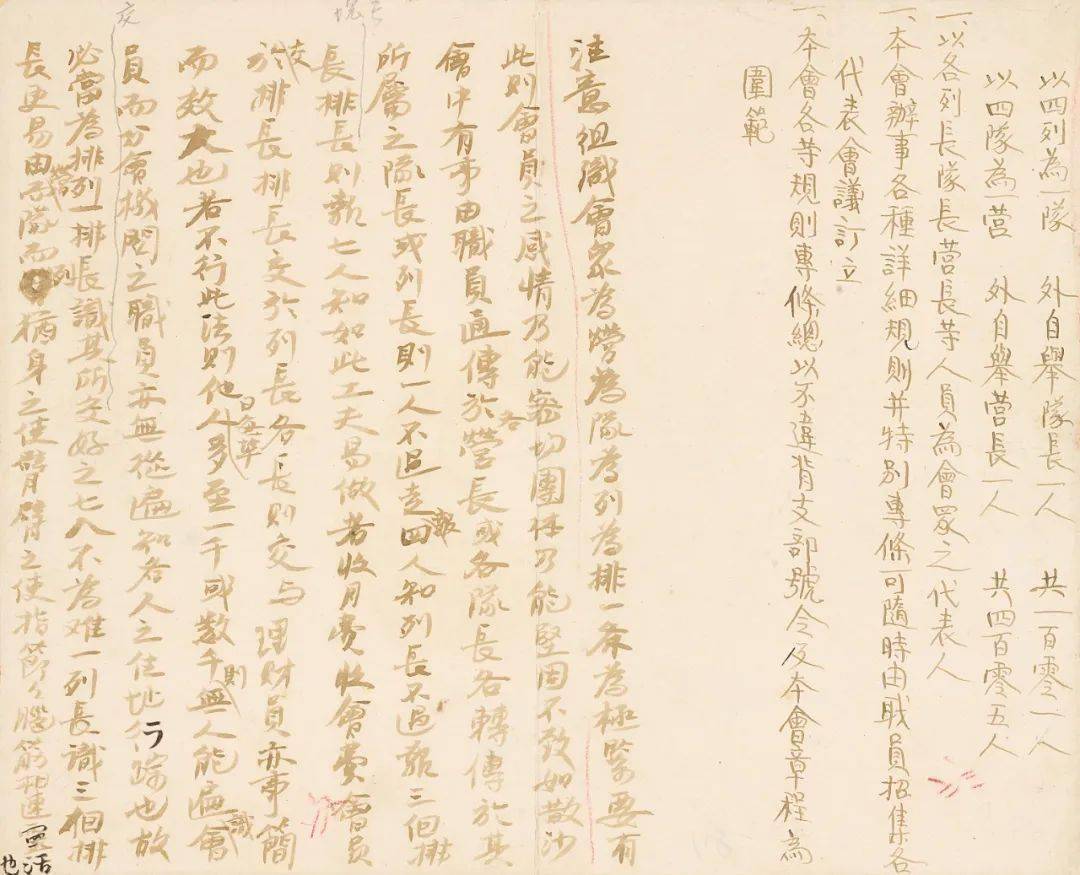 以四列為一隊　外自舉隊長一人　共一百零一人
以四隊為一営　外自舉営長一人　共四百零五人
一、以各列長隊長営長等人員為會眾之代表人
一、本會辦事各種詳細規則并特別專條可隨時由職員招集各
代表會議訂立
一、本會各等規則專條總以不違背支部號令及本會章程為
圍範
注意組織會眾為營為隊為列為排一条為極緊要有
此則會員之感情乃能密切團体乃能堅固不致如散沙
會中有事由職員通傳於各營長或各隊長各轉傳於其
所屬之隊長或列長則一人不過走報四人知列長不過報三個排
長排長則報七人知如此工夫易做若收月費收會費會員
交於排長排長交於列長各長則交与理財員亦事簡
而效大也若不行此法則他日會眾人多至一千或數千則無人能遍識會
員而分會機関之職員亦無從遍知各人之住地行踪也故
必當為排列一排長識其所交好之七人不為难一列長識三個排
長更易由營而隊而列猶身之使臂臂之使指節々腦筋相連靈活
也
交